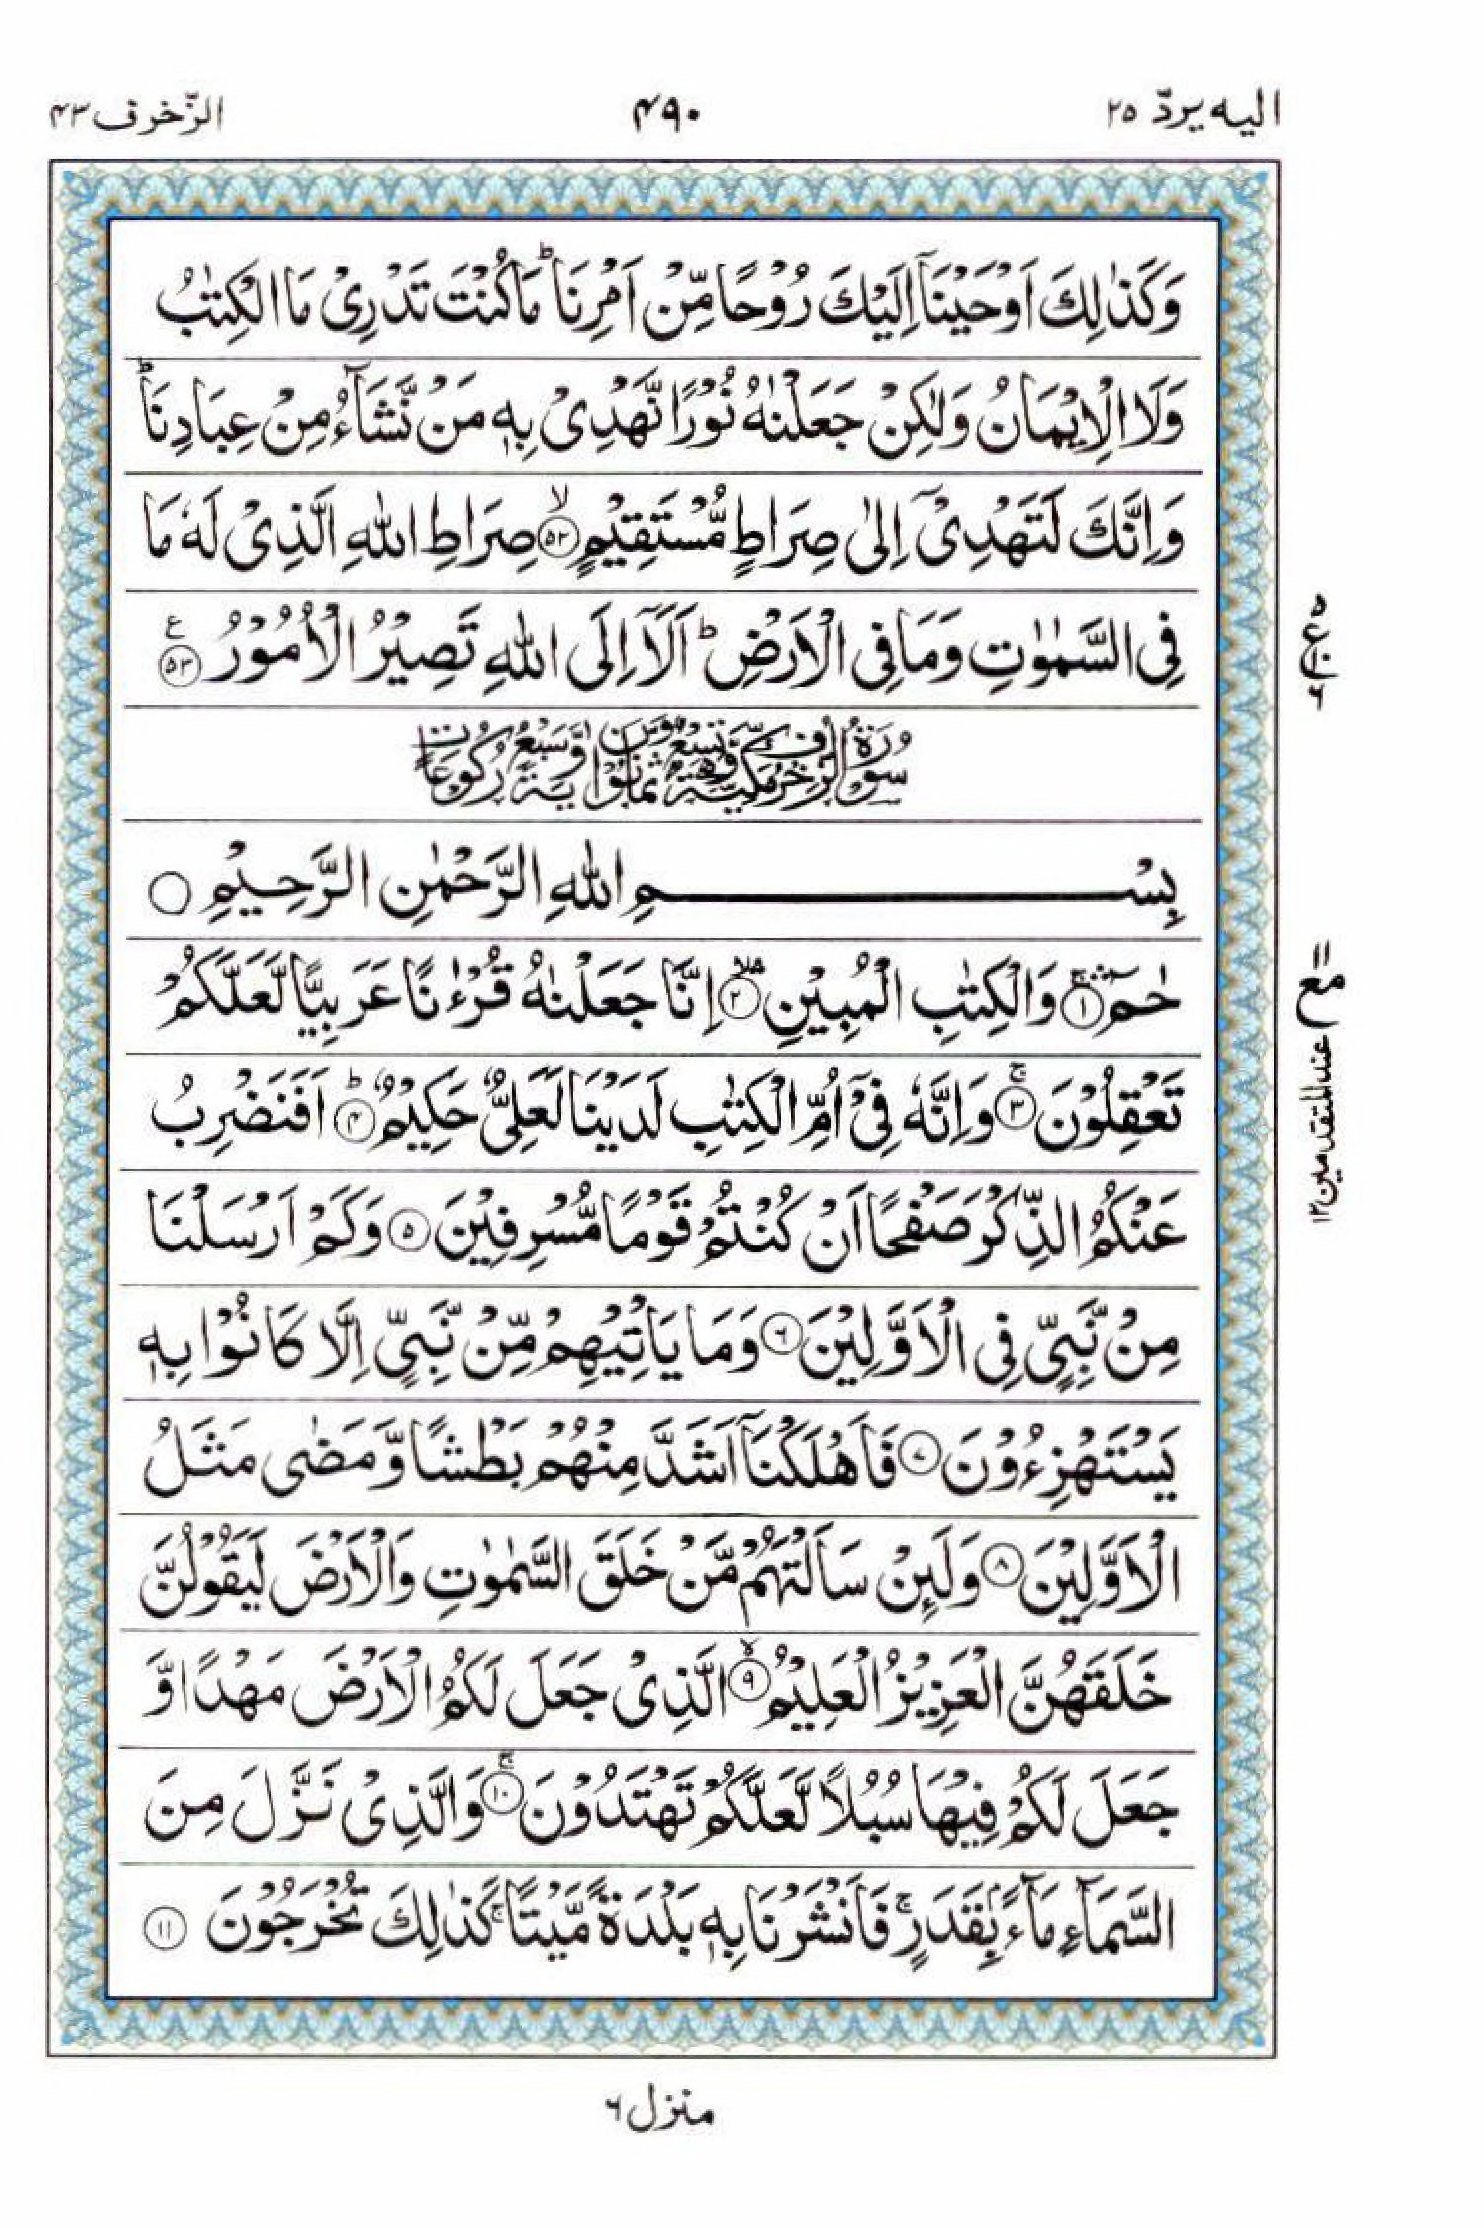 الیه یردّ ٢٥
٤٩٠
الزّخرف ٤٣
وَكَذٰلِكَ اَوْحَيْنَآ اِلَيْكَ رُوْحًا مِّنْ اَمْرِنَا ؕ مَا كُنْتَ تَدْرِىْ مَا الْكِتٰبُ
وَلَا الْاِيْمَانُ وَلٰكِنْ جَعَلْنٰهُ نُوْرًا نَّهْدِىْ بِهٖ مَنْ نَّشَآءُ مِنْ عِبَادِنَا ؕ
وَاِنَّكَ لَتَهْدِىْۤ اِلٰى صِرَاطٍ مُّسْتَقِيْمٍ ۙ‏﴿۵۲﴾ صِرَاطِ اللّٰهِ الَّذِىْ لَهٗ مَا
فِى السَّمٰوٰتِ وَمَا فِى الْاَرْضِ ؕ اَلَاۤ اِلَى اللّٰهِ تَصِيْرُ الْاُمُوْرُ ﴿۵۳﴾ ع
٥
ع
٦
سُوْرَةُ الزُّخْرُفِ مَكِّيَّةٌ وَّهِىَ تِسْعٌ وَّثَمَانُوْنَ اٰيَةً وَّسَبْعُ رُكُوْعَاتٍ
بِسْــــــمِ اللّٰهِ الرَّحْمٰنِ الرَّحِيْمِ ○
حٰمٓ ۚ‏﴿۱﴾ وَالْكِتٰبِ الْمُبِيْنِ ۙ‏﴿۲﴾ اِنَّا جَعَلْنٰهُ قُرْءٰنًا عَرَبِيًّا لَّعَلَّكُمْ
مع
عند المتقدمين ١٢
تَعْقِلُوْنَ ۚ‏﴿۳﴾ وَاِنَّهٗ فِىْۤ اُمِّ الْكِتٰبِ لَدَيْنَا لَعَلِىٌّ حَكِيْمٌ ؕ‏﴿۴﴾ اَفَنَضْرِبُ
عَنْكُمُ الذِّكْرَ صَفْحًا اَنْ كُنْتُمْ قَوْمًا مُّسْرِفِيْنَ ﴿۵﴾ وَكَمْ اَرْسَلْنَا
مِنْ نَّبِىٍّ فِى الْاَوَّلِيْنَ ﴿۶﴾ وَمَا يَاْتِيْهِمْ مِّنْ نَّبِىٍّ اِلَّا كَانُوْا بِهٖ
يَسْتَهْزِءُوْنَ ﴿۷﴾ فَاَهْلَكْنَاۤ اَشَدَّ مِنْهُمْ بَطْشًا وَّمَضٰى مَثَلُ
الْاَوَّلِيْنَ ﴿۸﴾ وَلَئِنْ سَاَلْتَهُمْ مَّنْ خَلَقَ السَّمٰوٰتِ وَالْاَرْضَ لَيَقُوْلُنَّ
خَلَقَهُنَّ الْعَزِيْزُ الْعَلِيْمُ ۙ‏﴿۹﴾ الَّذِىْ جَعَلَ لَكُمُ الْاَرْضَ مَهْدًا وَّ
جَعَلَ لَكُمْ فِيْهَا سُبُلًا لَّعَلَّكُمْ تَهْتَدُوْنَ ۚ‏﴿۱۰﴾ وَالَّذِىْ نَزَّلَ مِنَ
السَّمَآءِ مَآءًۢ بِقَدَرٍ ۚ فَاَنْشَرْنَا بِهٖ بَلْدَةً مَّيْتًا ۚ كَذٰلِكَ تُخْرَجُوْنَ ﴿۱۱﴾
منزل ٦